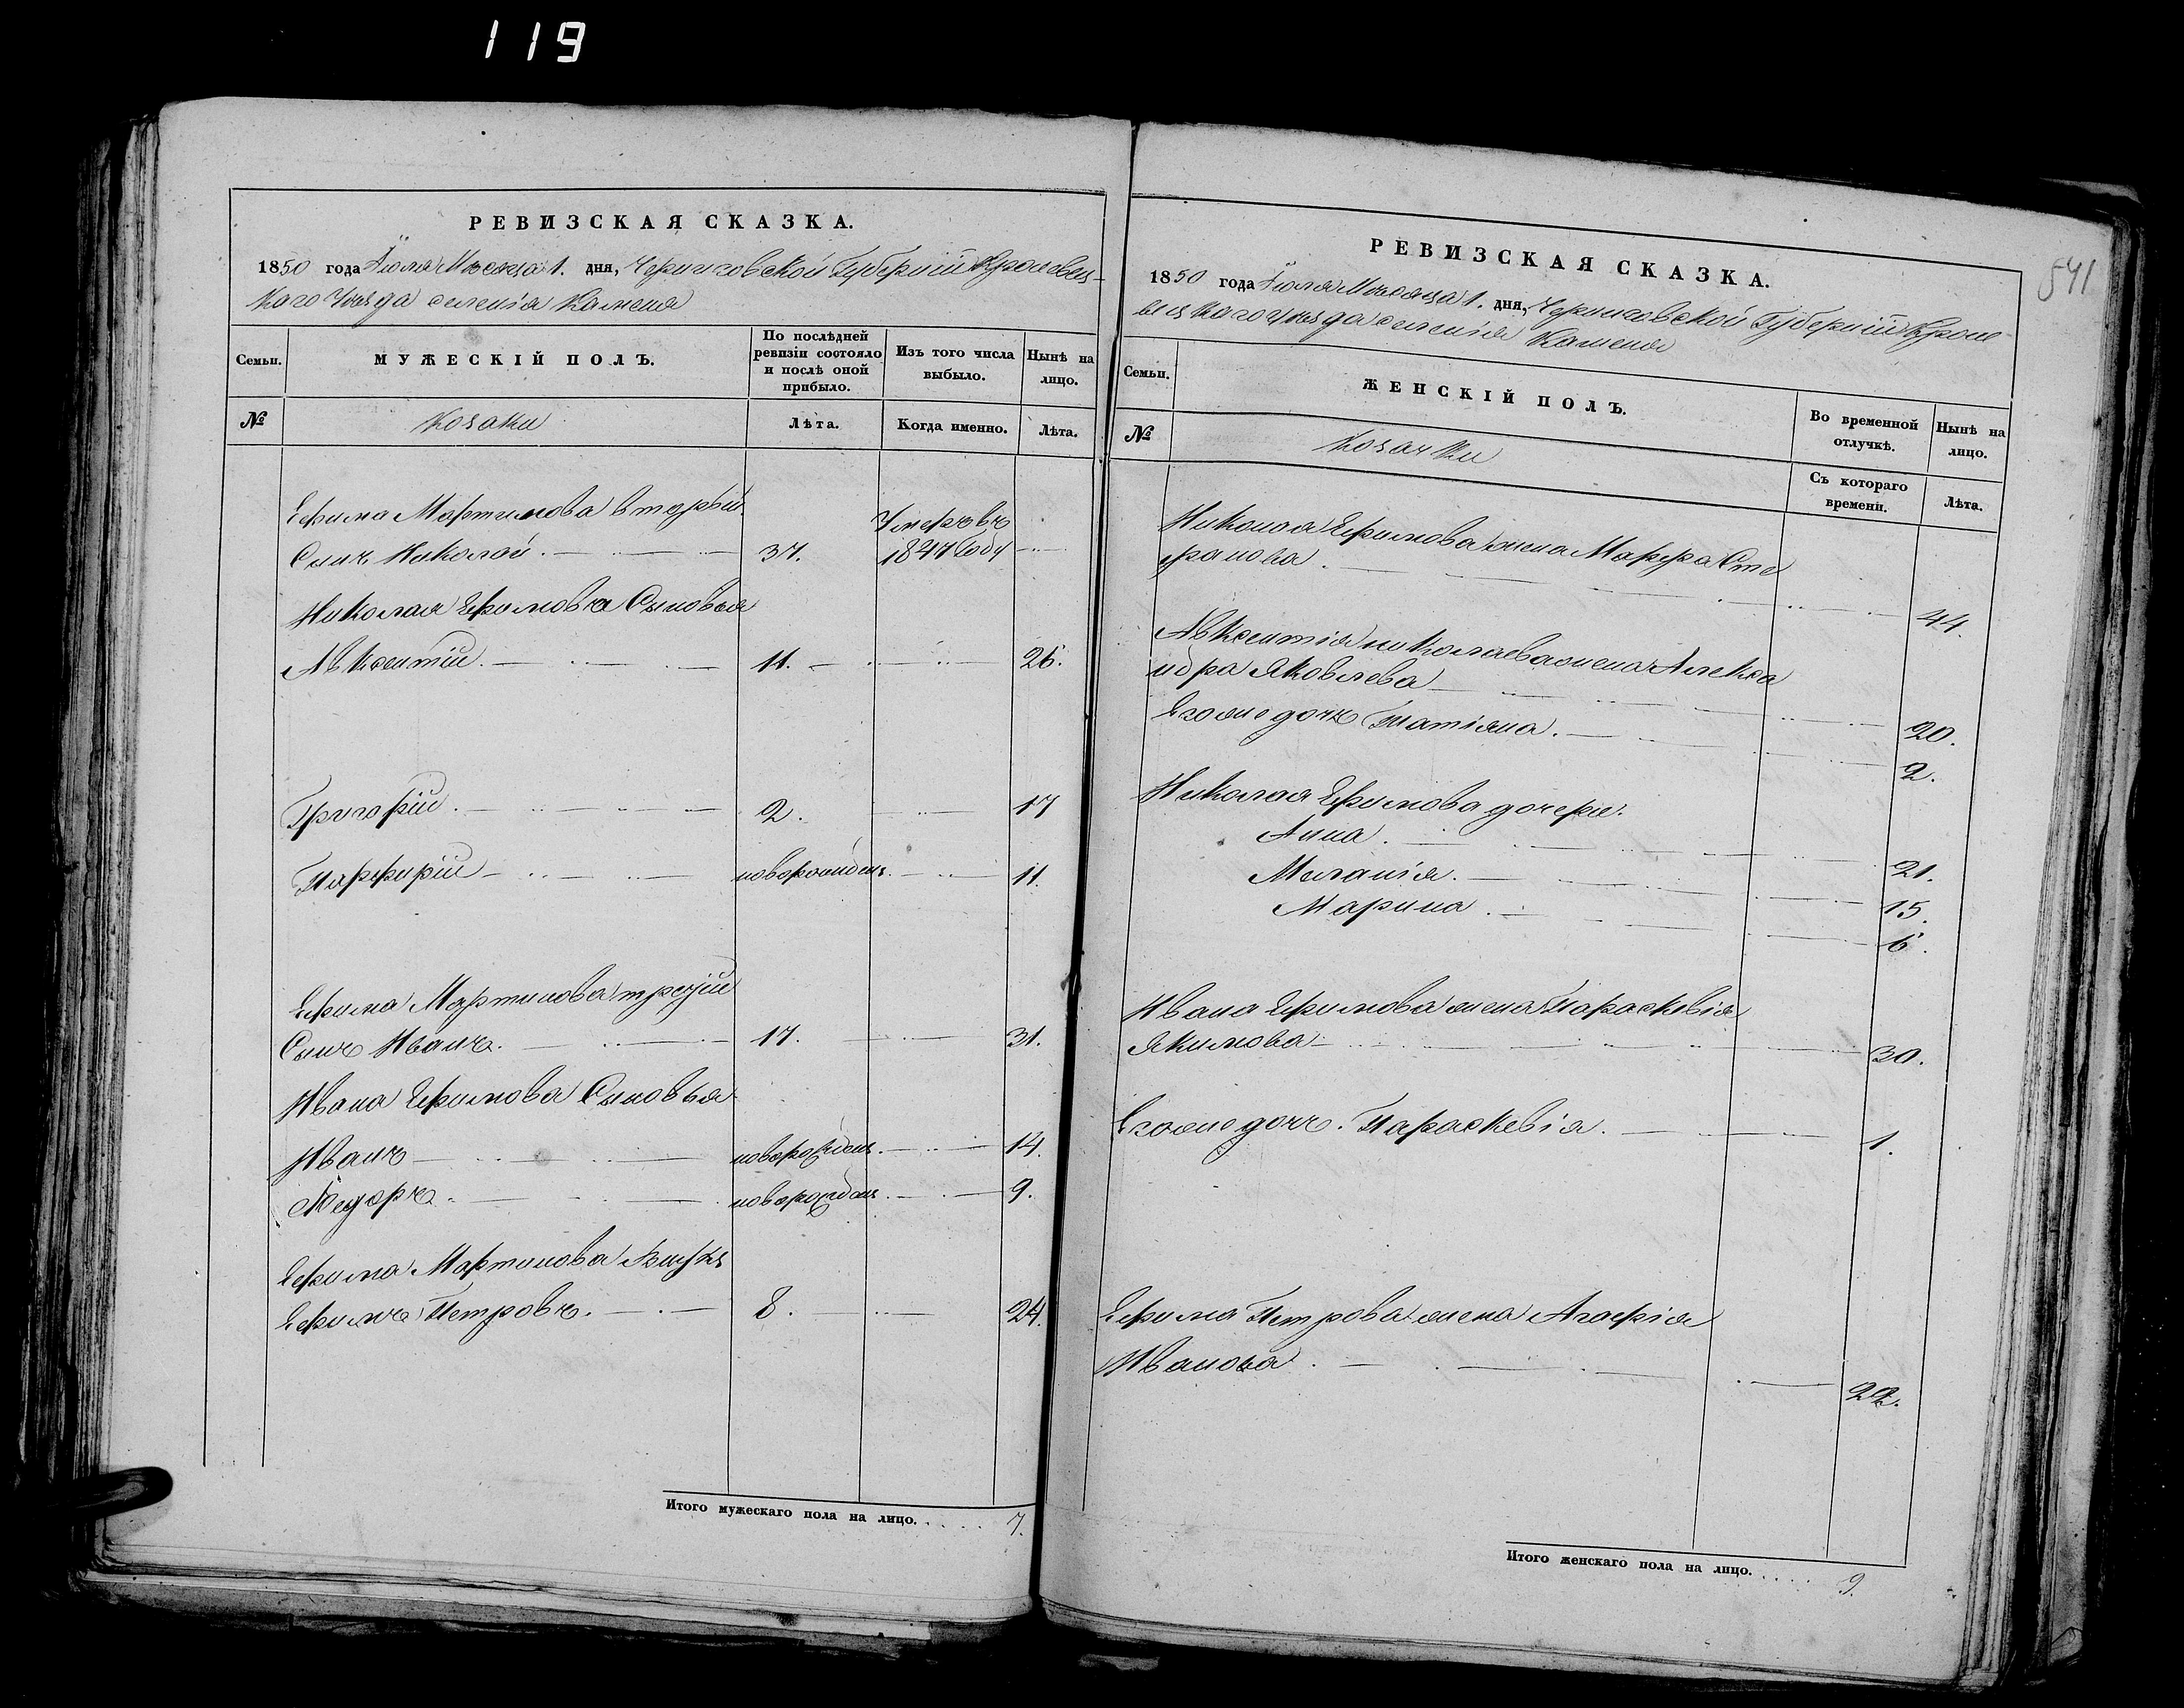 119
РЕВИЗСКАЯ СКАЗКА.
1850 года Іюля Мѣсяца 1. дня, Черниговской Губерніи Кролевец-
каго Уѣзда селенія Каменя
Семьи.
МУЖЕСКІЙ ПОЛЪ.
По послѣдней
ревизіи состояло
и послѣ оной
прибыло.
Изъ того числа
выбыло.
Нынѣ на
лицо.
№
Козаки
Лѣта.
Когда именно.
Лѣта.
Ефима Мартинова вторый
Умеръ въ
Сынъ Николай. 37. 1847 году
Николая Ефимова Сыновья
Авксентій. 11. 26.
Григорій. 2. 17
Парфирій новорожден. 11.
Ефима Мартинова третій
Сынъ Иванъ. 17. 31.
Ивана Ефимова Сыновья
Иванъ новорожден. 14.
Федоръ. новорожден. 9.
Ефима Мартинова Внукъ
Ефимъ Петровъ. 8. 24.
Итого мужескаго пола на лицо. 7.
541
РЕВИЗСКАЯ СКАЗКА.
1850 года Іюля Мѣсяца 1. дня, Черниговской Губерніи Кроле-
вецкаго уѣзда селенія Каменя
Семьи.
ЖЕНСКІЙ ПОЛЪ.
Во временной
отлучкѣ.
Нынѣ на
лицо.
№
Козачки
Съ котораго
времени.
Лѣта.
Николая Ефимова жена Марфа Сте
фанова. 44.
Авксентія николаева жена Алекса
ндра Яковлева 20.
Его же дочь Татіяна. 2.
Николая Ефимова дочери.
Анна. 21.
Меланія. 15.
Марина. 6.
Ивана Ефимова жена Параскевія
Якимова 30.
Его же дочь. Параскевія. 1.
Ефима Петрова жена Агафія
Иванова. 22.
Итого женскаго пола на лицо. 9.